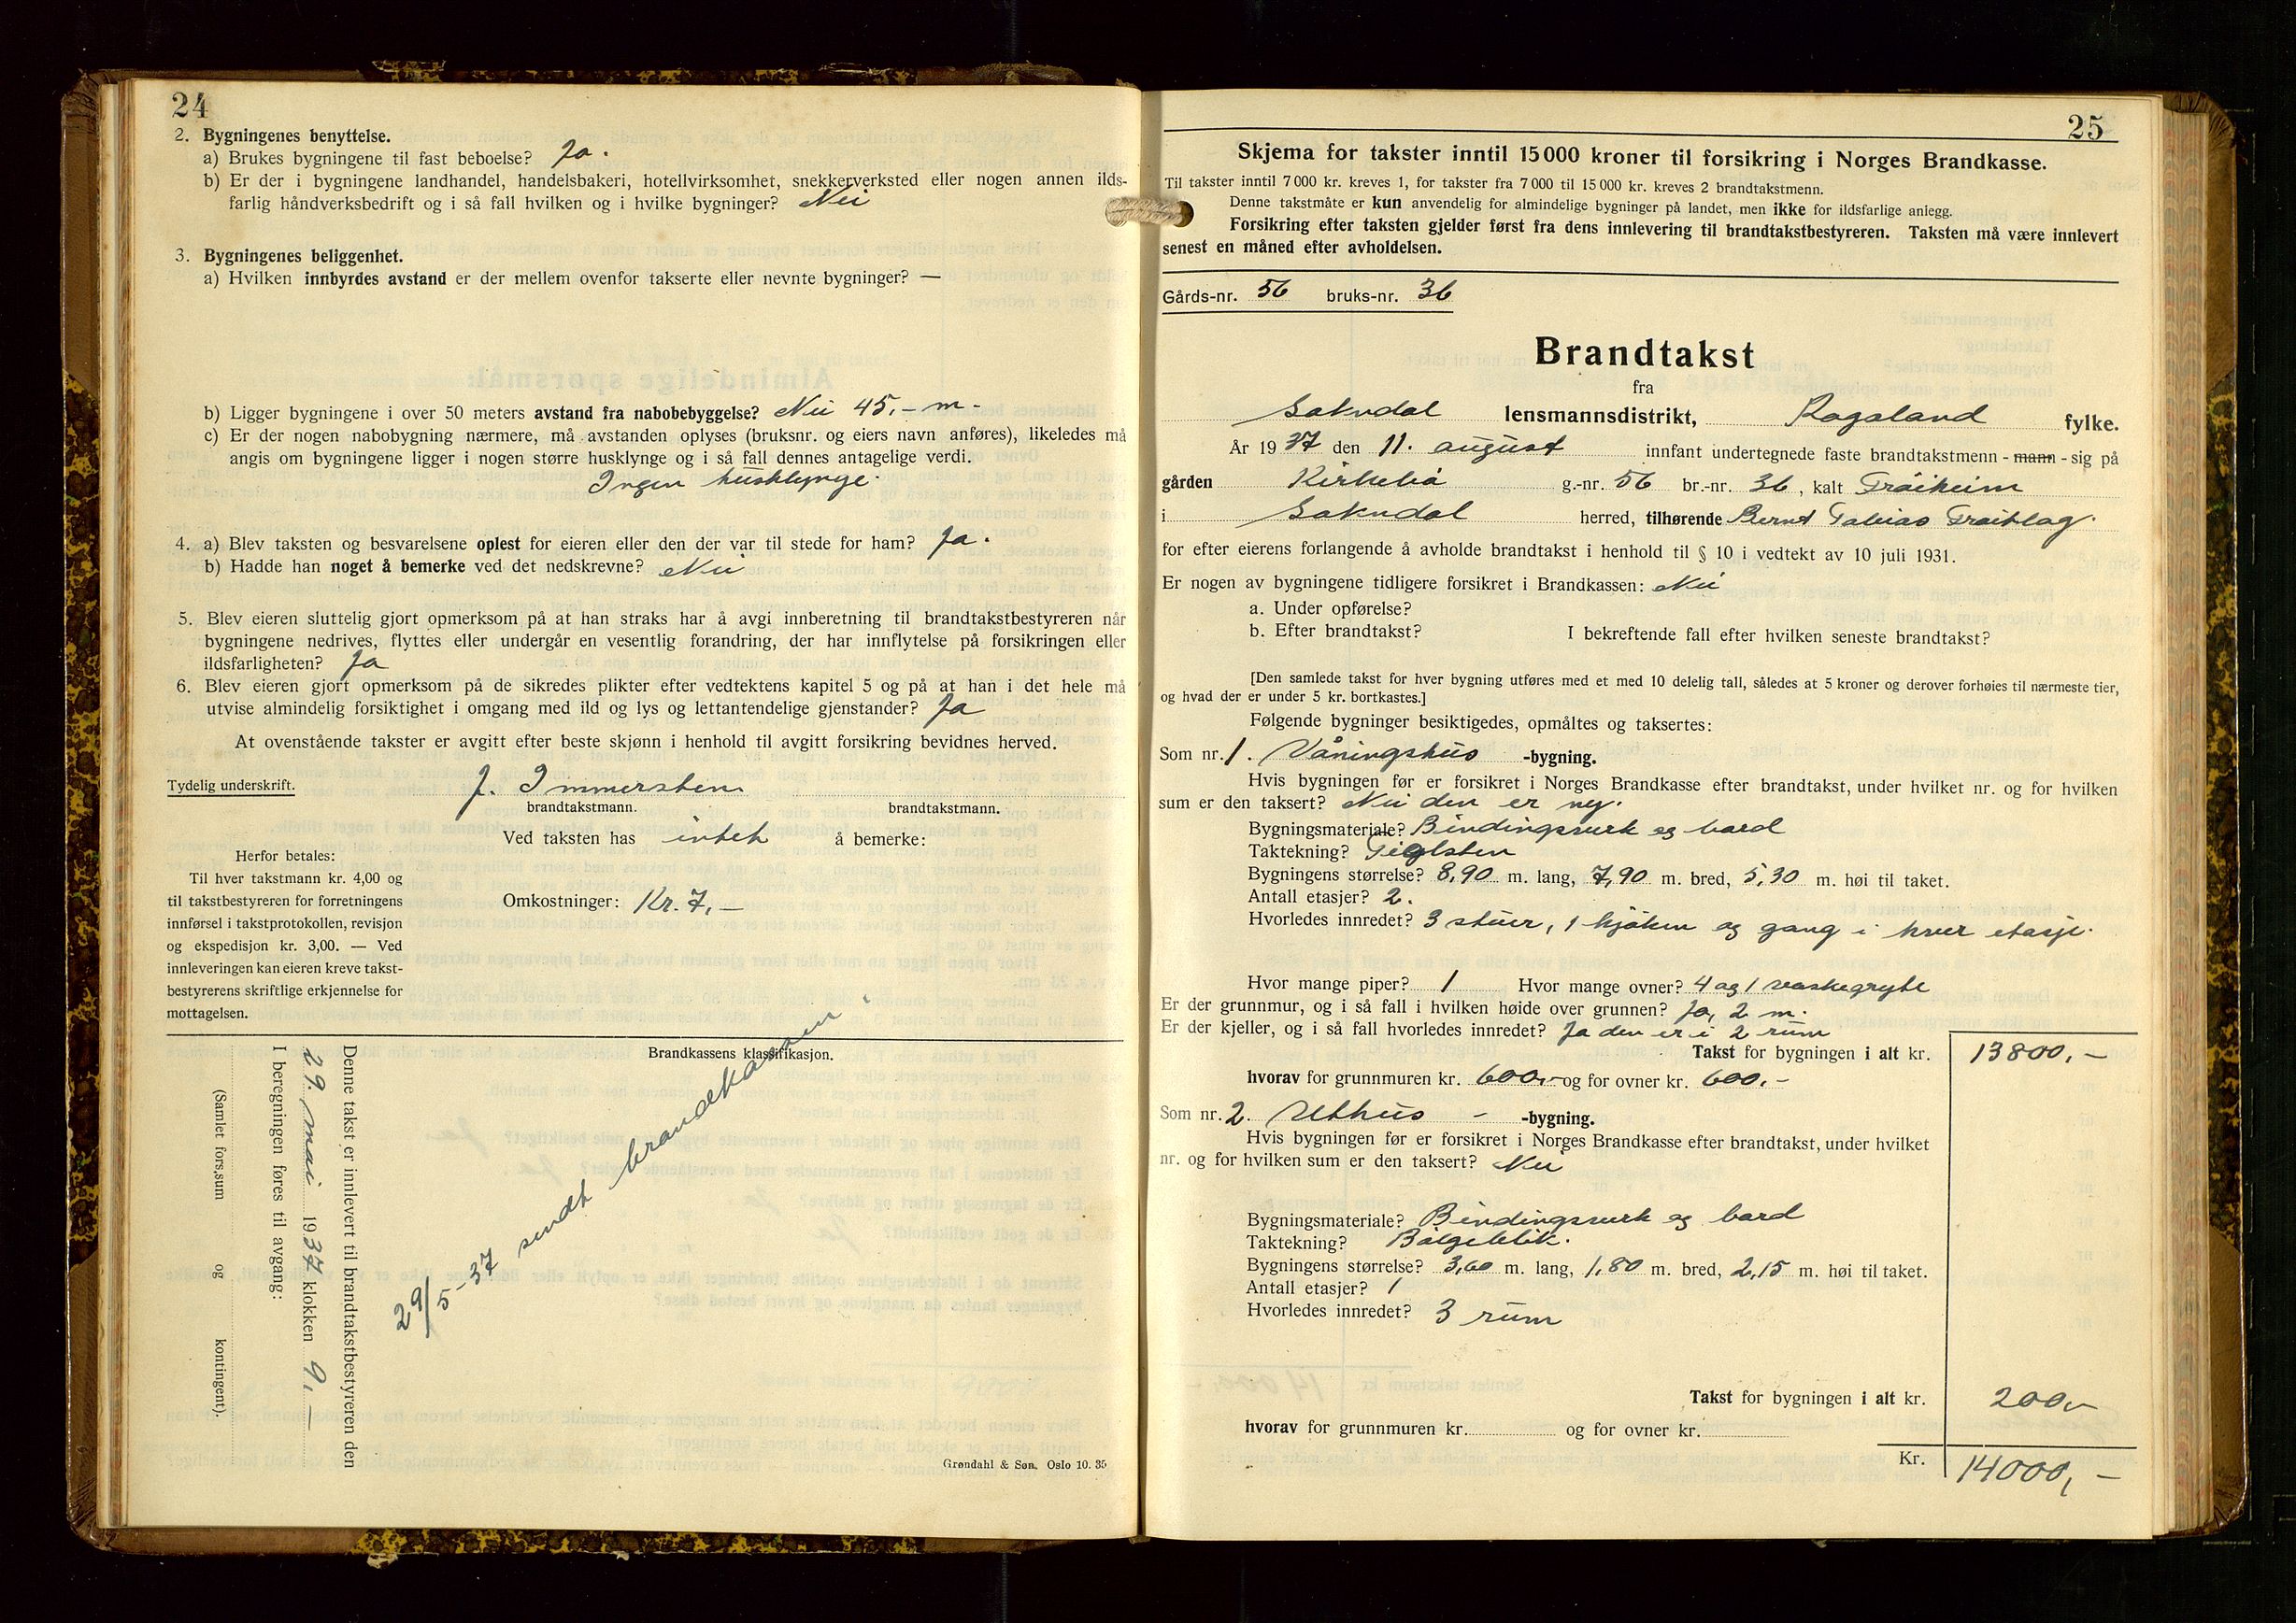 24
2. Bygningenes benyttelse.
a) Brukes bygningene til fast beboelse? Ja.
b) Er der i bygningene landhandel, handelsbakeri, hotellvirksomhet, snekkerverksted eller nogen annen ilds-
farlig håndverksbedrift og i så fall hvilken og i hvilke bygninger? Nei
3. Bygningenes beliggenhet.
a) Hvilken innbyrdes avstand er der mellem ovenfor takserte eller nevnte bygninger? —
b) Ligger bygningene i over 50 meters avstand fra nabobebyggelse? Nei 45,- m.
c) Er der nogen nabobygning nærmere, må avstanden oplyses (bruksnr. og eiers navn anføres), likeledes må
angis om bygningene ligger i nogen større husklynge og i så fall dennes antagelige verdi.
Ingen husklynge.
4. a) Blev taksten og besvarelsene oplest for eieren eller den der var til stede for ham? Ja.
b) Hadde han noget å bemerke ved det nedskrevne? Nei
5. Blev eieren sluttelig gjort opmerksom på at han straks har å avgi innberetning til brandtakstbestyreren når
bygningene nedrives, flyttes eller undergår en vesentlig forandring, der har innflytelse på forsikringen eller
ildsfarligheten? Ja
6. Blev eieren gjort opmerksom på de sikredes plikter efter vedtektens kapitel 5 og på at han i det hele må
utvise almindelig forsiktighet i omgang med ild og lys og lettantendelige gjenstander? Ja
At ovenstående takster er avgitt efter beste skjønn i henhold til avgitt forsikring bevidnes herved.
Tydelig underskrift. J. Immerstein
brandtakstmann. brandtakstmann.
Ved taksten has intet å bemerke:
Herfor betales:
Til hver takstmann kr. 4,00 og
til takstbestyreren for forretningens
innførsel i takstprotokollen, revisjon
og ekspedisjon kr. 3,00. — Ved
innleveringen kan eieren kreve takst-
bestyrerens skriftlige erkjennelse for
mottagelsen.
Omkostninger: Kr. 7,—
Brandkassens klassifikasjon.
29/5-37 sendt brandekassen
Denne takst er innlevert til brandtakstbestyreren den
29. mai 1937 klokken 9,—
I beregningen føres til avgang:
(Samlet fors.sum og kontingent).
Grøndahl & Søn, Oslo 10. 35
25
Skjema for takster inntil 15 000 kroner til forsikring i Norges Brandkasse.
Til takster inntil 7 000 kr. kreves 1, for takster fra 7 000 til 15 000 kr. kreves 2 brandtakstmenn.
Denne takstmåte er kun anvendelig for almindelige bygninger på landet, men ikke for ildsfarlige anlegg.
Forsikring efter taksten gjelder først fra dens innlevering til brandtakstbestyreren. Taksten må være innlevert
senest en måned efter avholdelsen.
Gårds-nr. 56 bruks-nr. 36
Brandtakst
fra
Sokndal lensmannsdistrikt, Rogaland fylke.
År 1937 den 11. august innfant undertegnede faste brandtakstmenn - mann - sig på
gården Kirkebø g.-nr. 56 br.-nr. 36, kalt Frøiheim
i Sokndal herred, tilhørende Bernt Tobias Frøitlog.
for efter eierens forlangende å avholde brandtakst i henhold til § 10 i vedtekt av 10 juli 1931.
Er nogen av bygningene tidligere forsikret i Brandkassen: Nei
a. Under opførelse?
b. Efter brandtakst? I bekreftende fall efter hvilken seneste brandtakst?
[Den samlede takst for hver bygning utføres med et med 10 delelig tall, således at 5 kroner og derover forhøies til nærmeste tier,
og hvad der er under 5 kr. bortkastes.]
Følgende bygninger besiktigedes, opmåltes og taksertes:
Som nr. 1. Våningshus -bygning.
Hvis bygningen før er forsikret i Norges Brandkasse efter brandtakst, under hvilket nr. og for hvilken
sum er den taksert? Nei den er ny.
Bygningsmateriale? Bindingsverk og bord
Taktekning? Teglsten
Bygningens størrelse? 8,90 m. lang, 7,90 m. bred, 5,30 m. høi til taket.
Antall etasjer? 2.
Hvorledes innredet? 3 stuer, 1 kjøken og gang i hver etasje.
Hvor mange piper? 1 Hvor mange ovner? 4 og 1 vaskegryte
Er der grunnmur, og i så fall i hvilken høide over grunnen? Ja, 2 m.
Er der kjeller, og i så fall hvorledes innredet? Ja den er i 2 rum
Takst for bygningen i alt kr. 13800,—
hvorav for grunnmuren kr. 600,- og for ovner kr. 600,-
Som nr. 2. Uthus - -bygning.
Hvis bygningen før er forsikret i Norges Brandkasse efter brandtakst, under hvilket
nr. og for hvilken sum er den taksert? Nei
Bygningsmateriale? Bindingsverk og bord
Taktekning? Bølgeblik.
Bygningens størrelse? 3,60 m. lang, 1,80 m. bred, 2,15 m. høi til taket.
Antall etasjer? 1
Hvorledes innredet? 3 rum
Takst for bygningen i alt kr. 200,-
hvorav for grunnmuren kr. og for ovner kr.
Kr. 14000,—